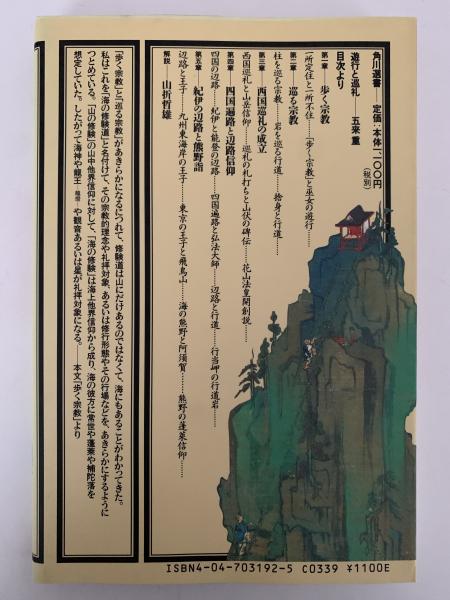 角川選書　定価:本体一一〇〇円(税別)
遊行と巡礼　五来 重
目次より
第一章　歩く宗教
一所定住と一所不住……「歩く宗教」と巫女の遊行……
第二章　巡る宗教
柱を巡る宗教……岩を巡る行道……捨身と行道……
第三章　西国巡礼の成立
西国巡礼と山岳信仰……巡礼の札打ちと山伏の碑伝……花山法皇開創説……
第四章　四国遍路と辺路信仰
四国の辺路……紀伊と能登の辺路……四国遍路と弘法大師……辺路と行道……行当岬の行道岩……
第五章　紀伊の辺路と熊野詣
辺路と王子……九州東海岸の王子……東京の王子と飛鳥山……海の熊野と阿須賀……熊野の蓬萊信仰……
解説――山折哲雄
「歩く宗教」と「巡る宗教」があきらかになるにつれて、修験道は山にだけあるのではなくて、海にもあることがわかってきた。
私はこれを「海の修験道」と名付けて、その宗教的理念や礼拝対象、あるいは修行形態やその行場などを、あきらかにするように
つとめている。「山の修験」の山中他界信仰に対して、「海の修験」は海上他界信仰から成り、海の彼方に常世や蓬萊や補陀落を
想定していた。したがって海神や龍王(龍燈)や観音あるいは星が礼拝対象になる。――本文「歩く宗教」より
ISBN4-04-703192-5 C0339 ¥1100E